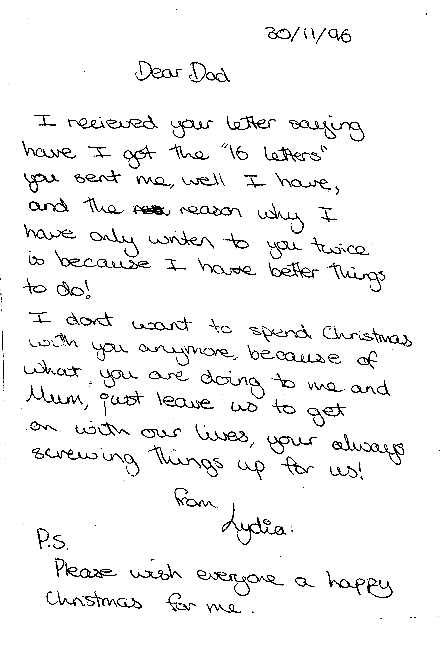 30/11/96
Dear Dad
I recieved your letter saying
have I got the "16 letters"
you sent me, well I have,
and the reason why I
have only writen to you twice
is because I have better things
to do!
I dont want to spend Christmas
with you anymore, because of
what you are doing to me and
Mum, just leave us to get
on with our lives, your always
screwing things up for us!
from
Lydia.
P.S.
Please wish everyone a happy
Christmas for me.